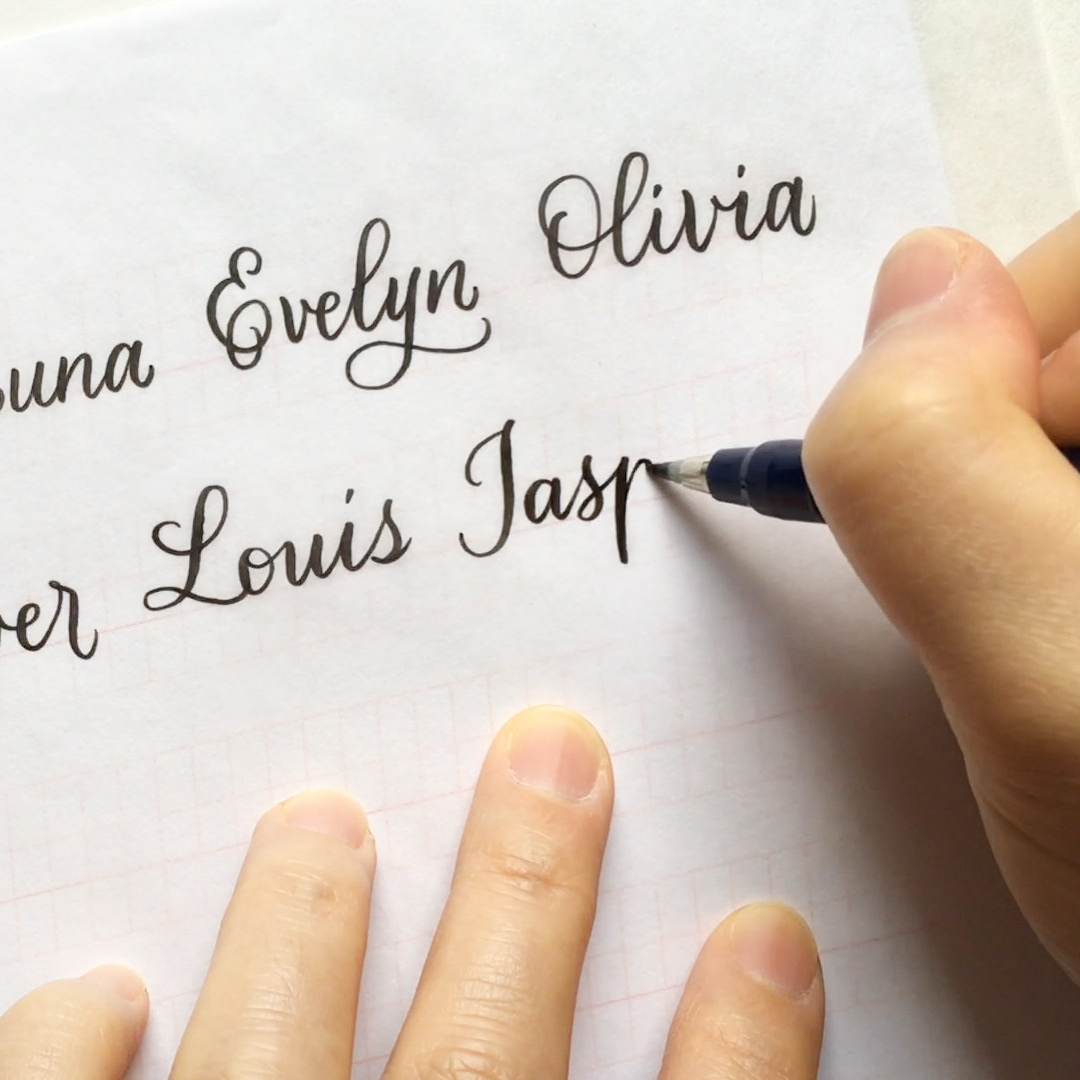 una Evelyn Olivia
er Louis Jasp